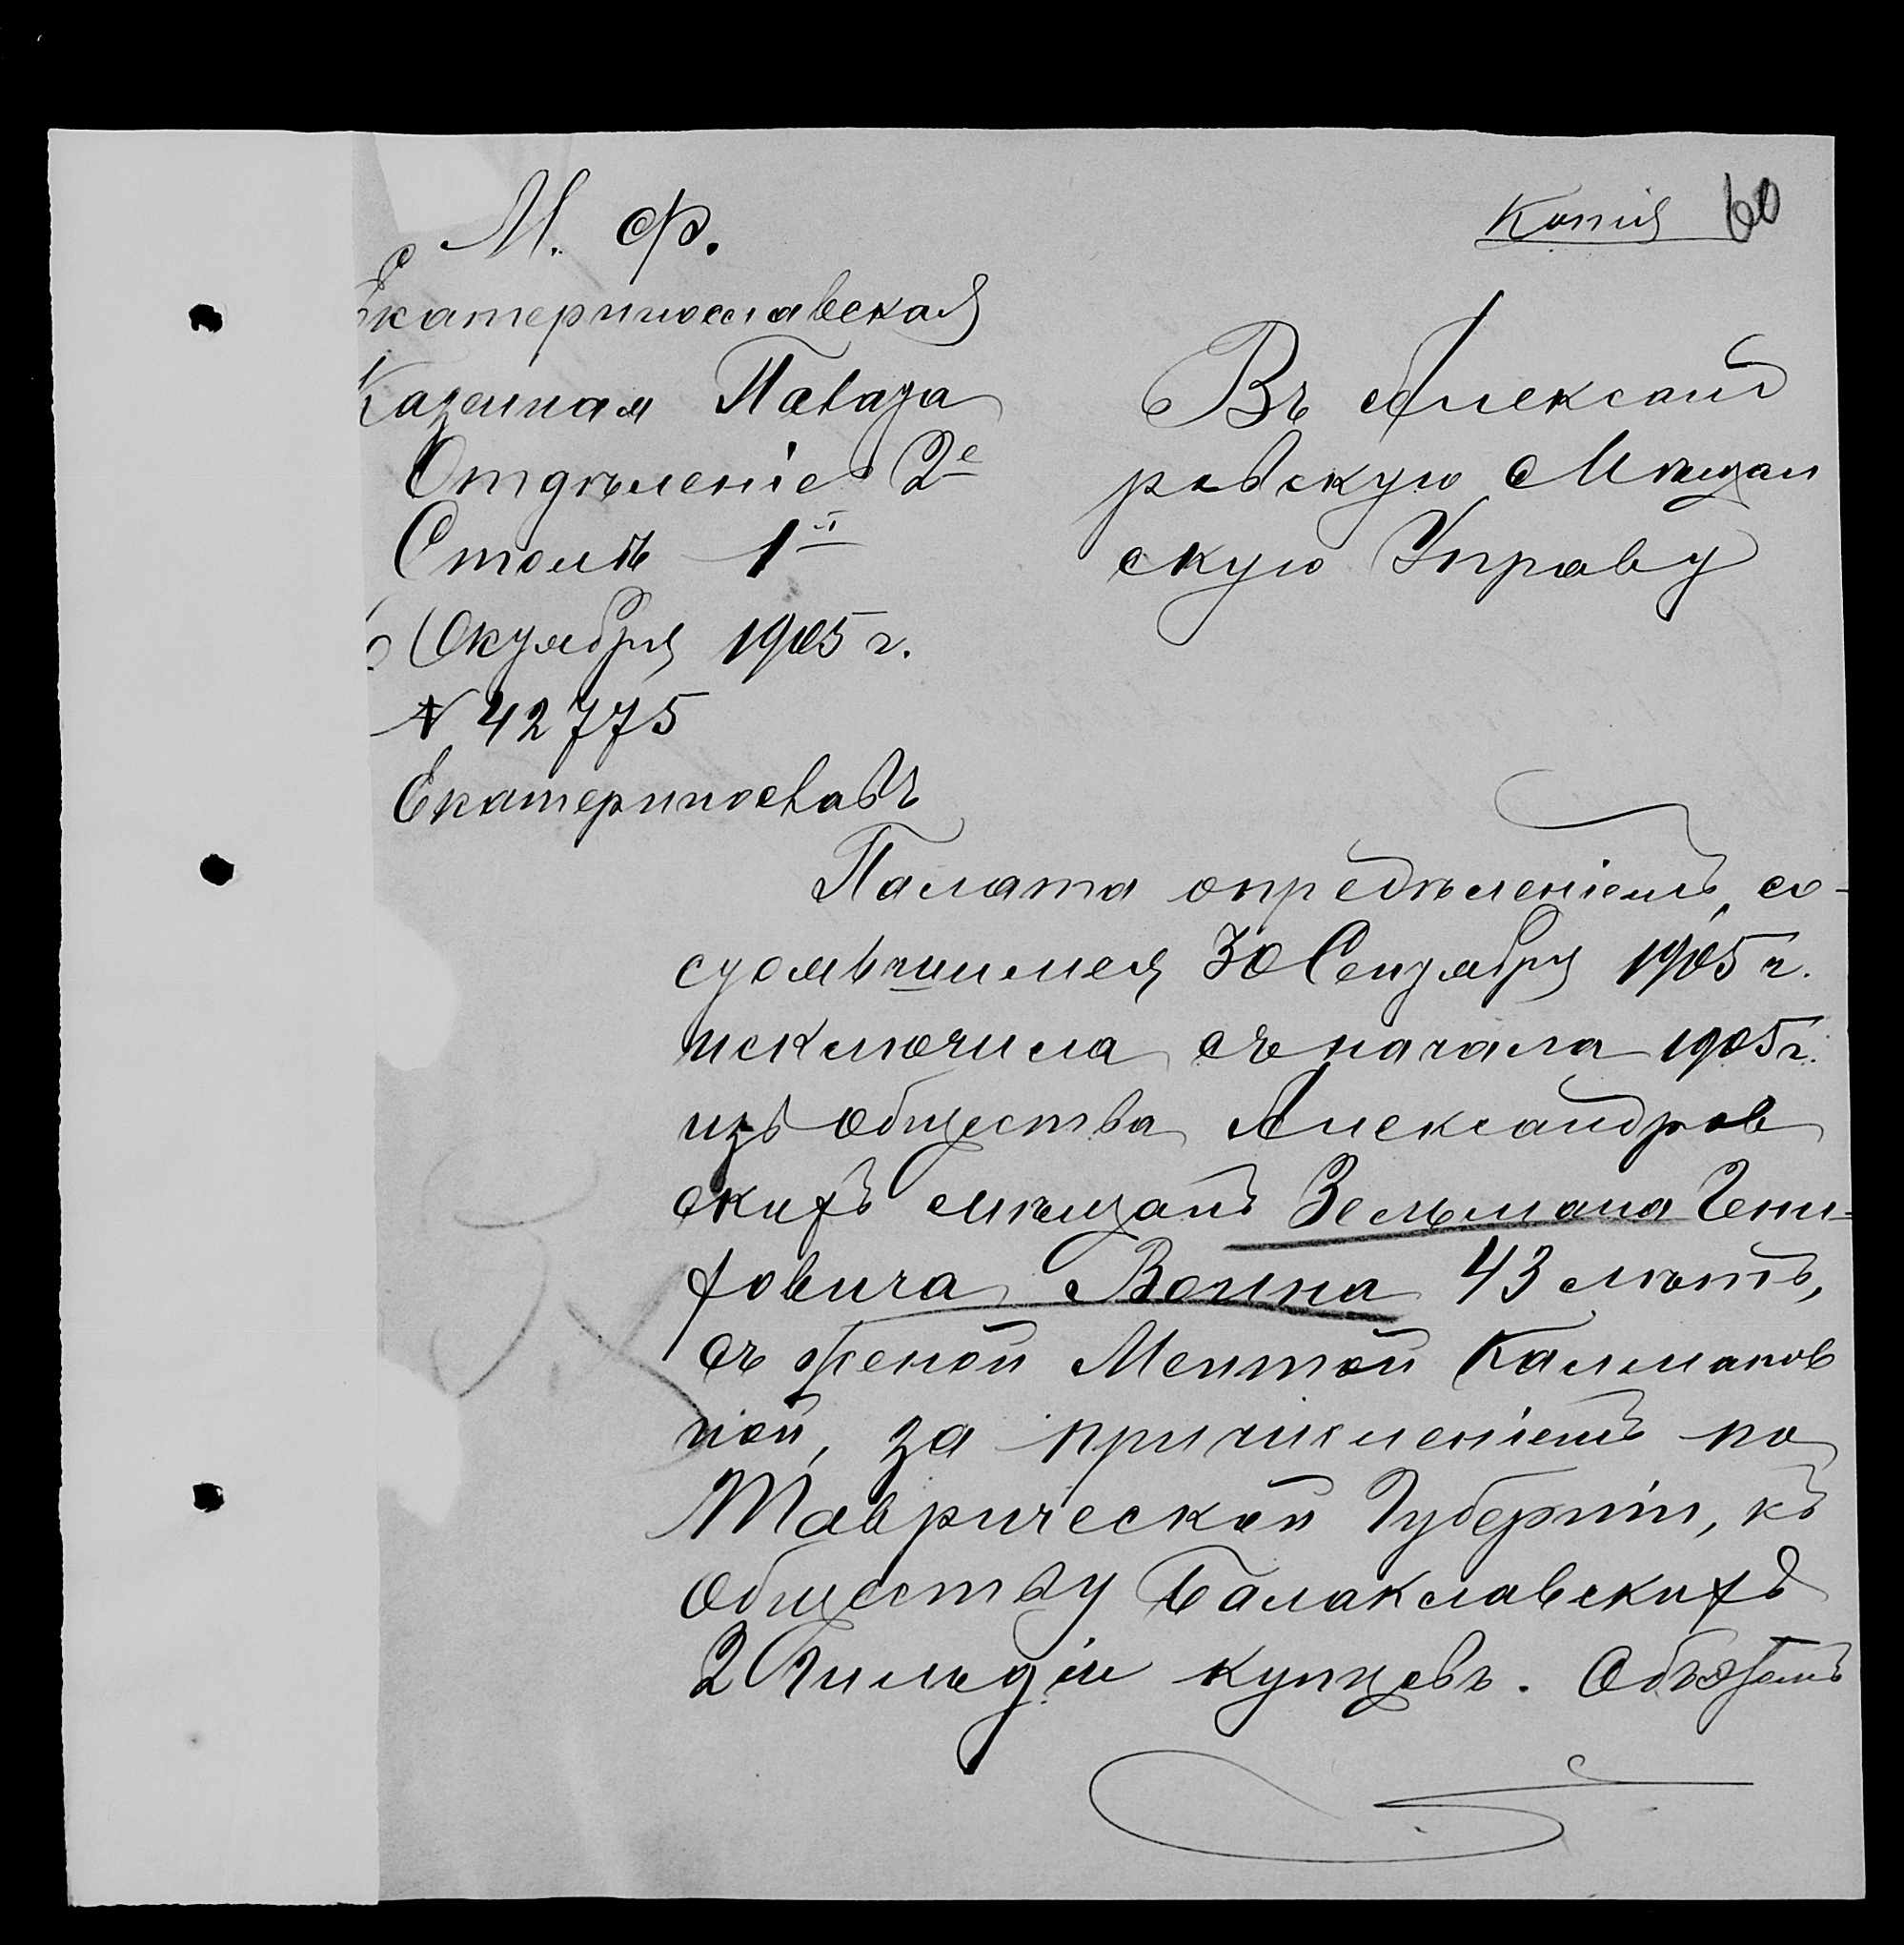 М. Ф.
Екатеринославская
Казенная Палата
Отдѣленіе 2е
Столъ 1й
Октября 1905 г.
№ 42775
Екатеринославъ
Копія 60
Въ Александ
ровскую Мѣщан
скую Управу
Палата опредѣленіемъ, со-
стоявшимся 30 Сентября 1905 г.
исключила съ начала 1905 г.
изъ общества Александров
скихъ мѣщанъ Зельмана Гени=
ховича 43 лѣтъ,
съ женой Калманов
ной, за причисленіемъ по
Таврической Губерніи, къ
обществу Балаклавскихъ
2 Гильдіи купцовъ. Объ этомъ